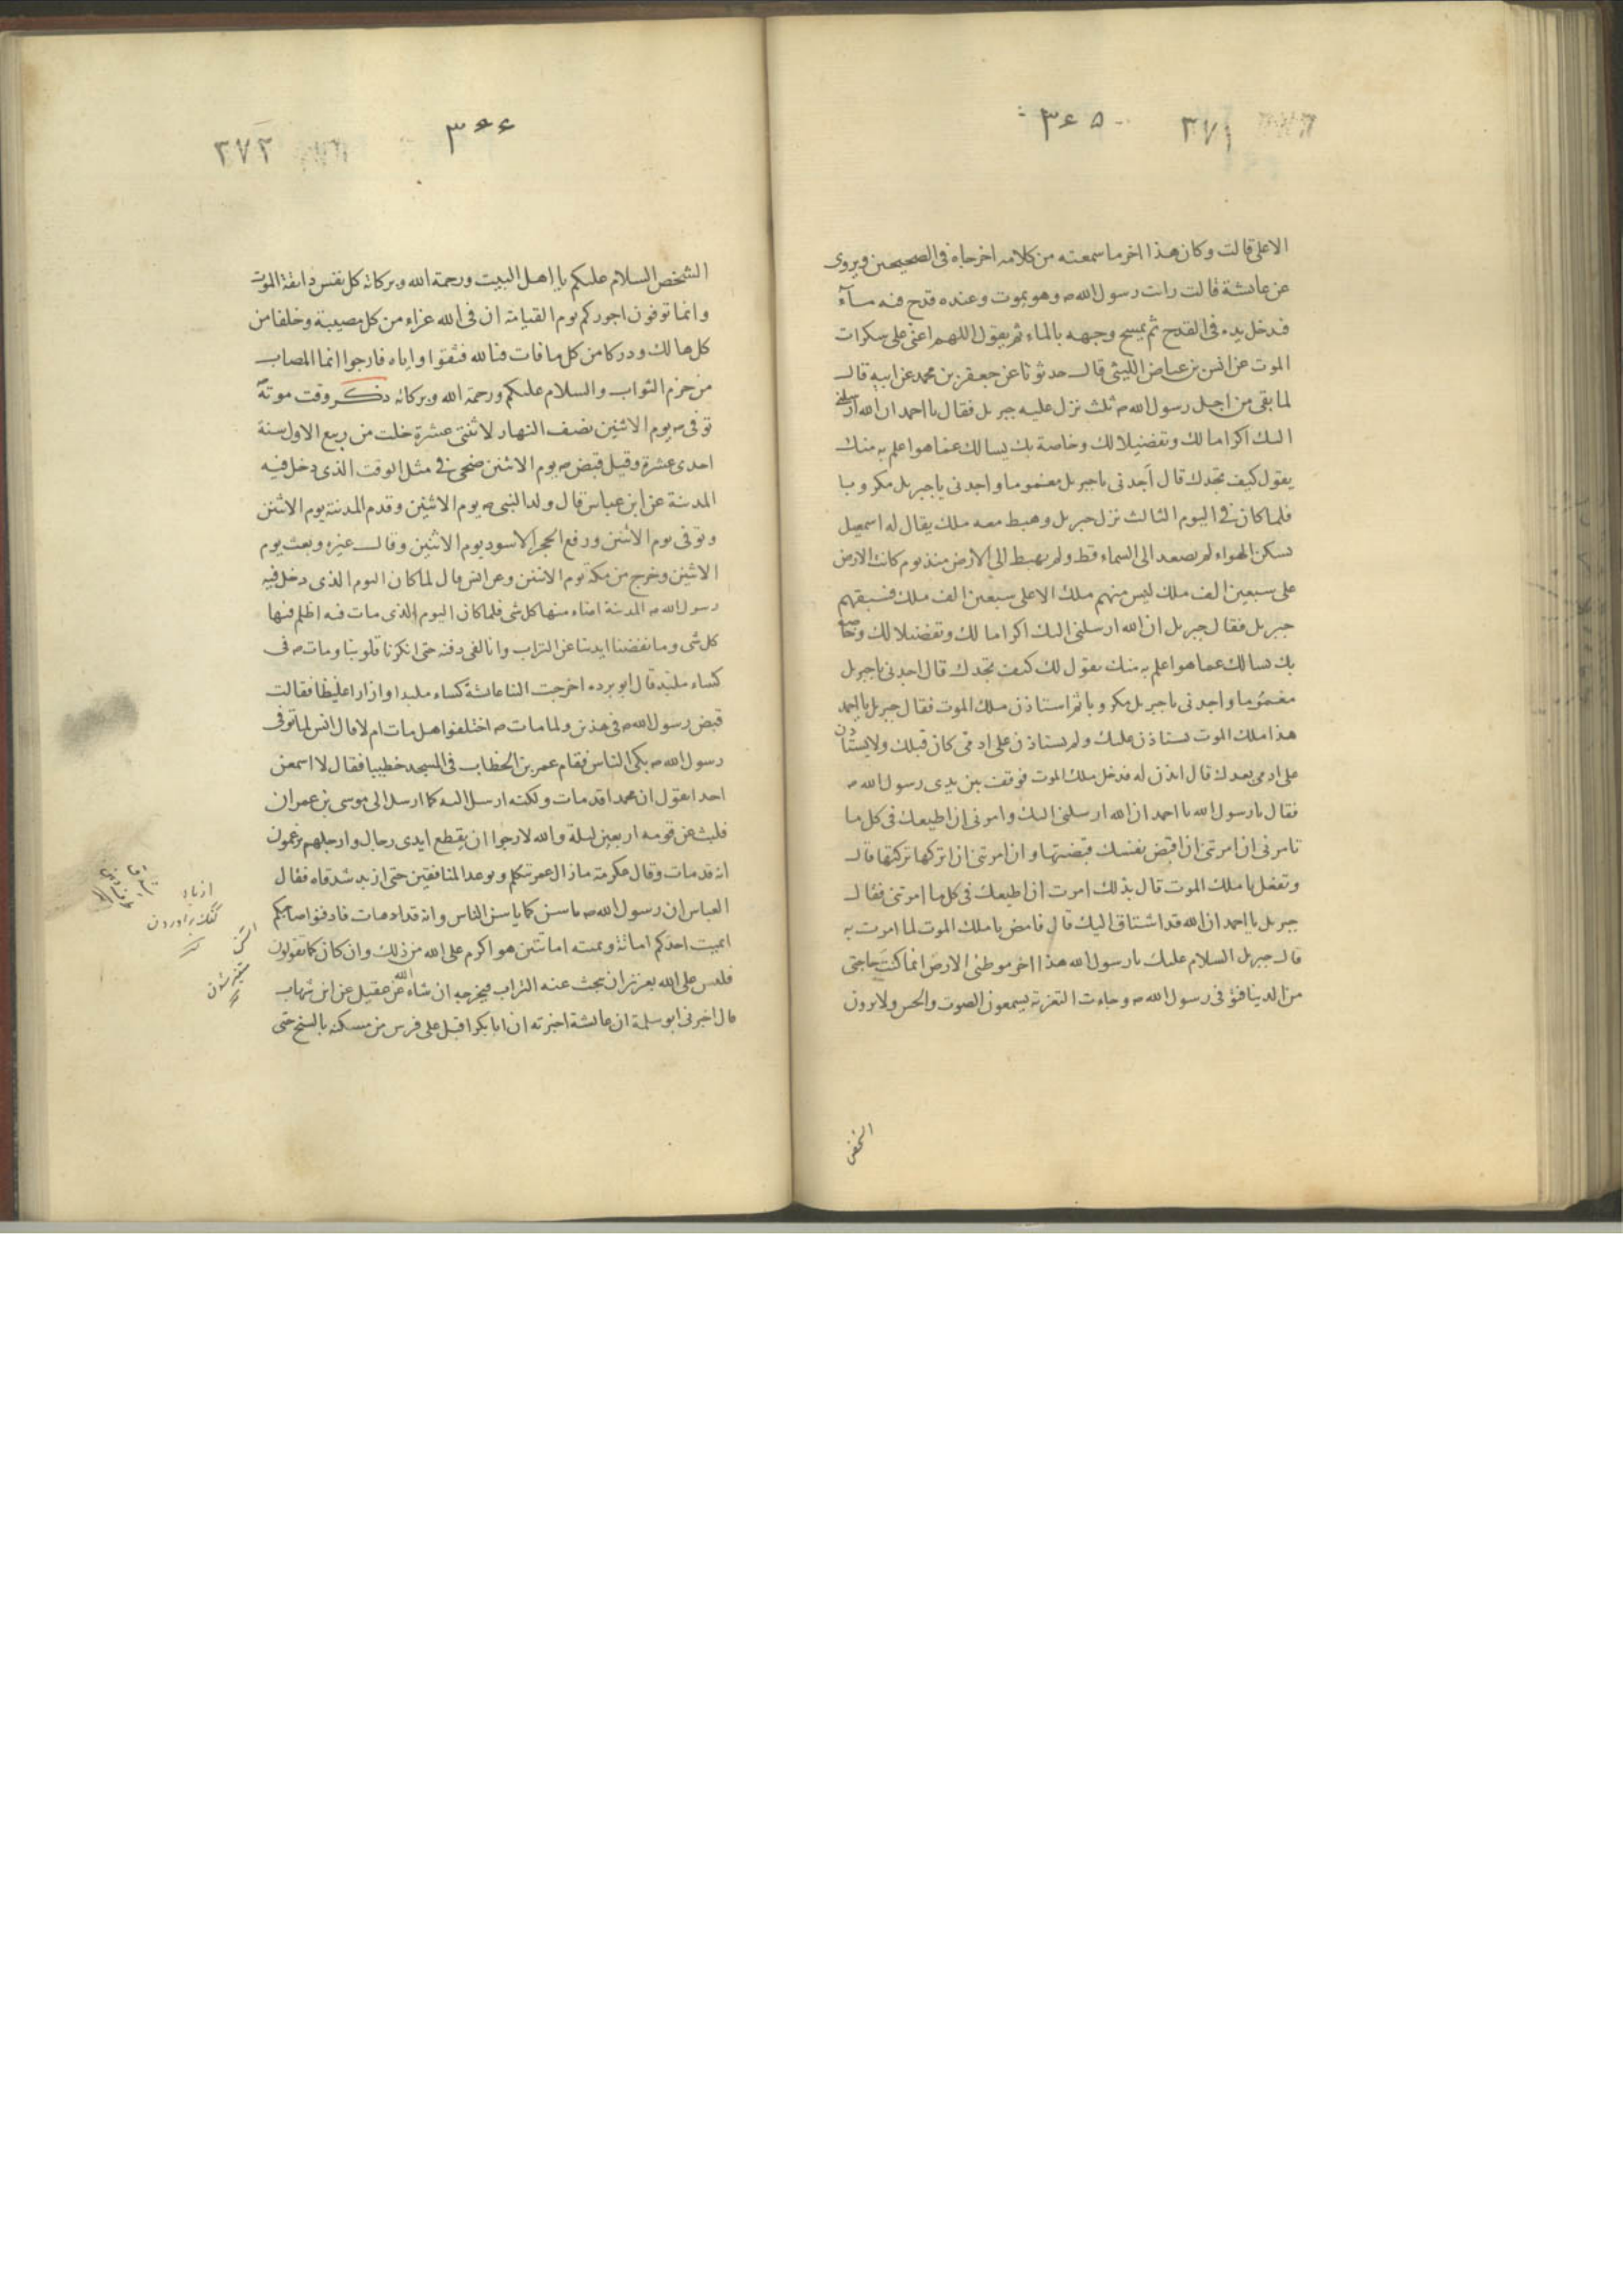 ٣٧١
٣٤٥
الاعلى قالت وكان هذا اخر ما سمعته من كلامه اخرجاه فى الصحيحين ويروى
عن عائشة قالت رايت رسول الله ص وهو يموت وعنده قدح فيه مآء
فيدخل يده فى القدح ثم يمسح وجهه بالماء ثم يقول اللهم اعنى على سكرات
الموت عن انس بن عياض الليثى قال حدثونا عن جعفر بن محمد عن ابيه قال
لما بقى من اجل رسول الله ص ثلث نزل عليه جبريل فقال يا احمد ان الله ارسلنى
اليك اكراما لك وتفضيلا لك وخاصة بك يسالك عما هو اعلم به منك
يقول كيف تجدك قال اجدنى يا جبريل مغموما واجدنى يا جبريل مكروبا
فلما كان فى اليوم الثالث نزل جبريل وهبط معه ملك يقال له اسمعيل
يسكن الهواء لم يصعد الى السماء قط ولم يهبط الى الارض منذ يوم كانت الارض
على سبعين الف ملك ليس منهم ملك الا على سبعين الف ملك فسبقهم
جبريل فقال جبريل ان الله ارسلنى اليك اكراما لك وتفضيلا لك وخاصة
بك يسالك عما هو اعلم به منك يقول لك كيف تجدك قال اجدنى يا جبريل
مغموما واجدنى يا جبريل مكروبا ثم استاذن ملك الموت فقال جبريل يا احمد
هذا ملك الموت يستاذن عليك ولم يستاذن على ادمى كان قبلك ولا يستاذن
على ادمى بعدك قال ايذن له فدخل ملك الموت فوقف بين يدى رسول الله ص
فقال يا رسول الله يا احمد ان الله ارسلنى اليك وامرنى ان اطيعك فى كل ما
تامرنى ان امرتنى ان اقبض نفسك قبضتها وان امرتنى ان اتركها تركتها قال
وتفعل يا ملك الموت قال بذلك امرت ان اطيعك فى كل ما امرتنى فقال
جبريل يا احمد ان الله قد اشتاق اليك قال فامض يا ملك الموت لما امرت به
قال جبريل السلام عليك يا رسول الله هذا اخر موطئى الارض انما كنت حاجتى
من الدينا فتوفى رسول الله ص وجاءت التعزية يسمعون الصوت والحس ولا يرون
الشخص
٣٧٢
٣٤٤
الشخص السلام عليكم يا اهل البيت ورحمة الله وبركاته كل نفس ذائقة الموت
وانما توفون اجوركم يوم القيامة ان فى الله عزاء من كل مصيبة وخلفا من
كل هالك ودركا من كل ما فات فبالله فثقوا واياه فارجوا انما المصاب
من حرم الثواب والسلام عليكم ورحمة الله وبركاته ذكر وقت موته
توفى ص يوم الاثنين نصف النهار لاثنتى عشرة خلت من ربيع الاول سنة
احدى عشرة وقيل قبض ص يوم الاثنين ضحى فى مثل الوقت الذى دخل فيه
المدينة عن ابن عباس قال ولد النبى ص يوم الاثنين وقدم المدينة يوم الاثنين
وتوفى يوم الاثنين ورفع الحجر الاسود يوم الاثنين وقال غيره وبعث يوم
الاثنين وخرج من مكة يوم الاثنين وعن انس قال لما كان اليوم الذى دخل فيه
رسول الله ص المدينة اضاء منها كل شى فلما كان اليوم الذى مات فيه اظلم منها
كل شى وما نفضنا ايدينا عن التراب وانا لفى دفنه حتى انكرنا قلوبنا ومات ص فى
كساء ملبد قال ابو برده اخرجت الينا عائشة كساء ملبدا وازارا غليظا فقالت
قبض رسول الله ص فى هذين ولما مات ص اختلفوا هل مات ام لا قال انس لما توفى
رسول الله ص بكى الناس فقام عمر بن الخطاب فى المسجد خطيبا فقال لا اسمعن
احدا يقول ان محمدا قد مات ولكنه ارسل اليه كما ارسل الى موسى بن عمران
فلبث عن قومه اربعين ليلة والله لارجوا ان يقطع ايدى رجال وارجلهم يزعمون
انه قد مات وقال عكرمة ما زال عمر يتكلم ويوعد المنافقين حتى ازبد شدقاه فقال
العباس ان رسول الله ص ياسن كما ياسن الناس وانه قد مات فادفنوا صاحبكم
ايميت احدكم اماتة ويميته اماتتين هو اكرم على الله من ذلك وان كان كما تقولون
فليس على الله بعزيز ان يبحث عنه التراب فيخرجه ان شاء الله عن عقيل عن ابن شهاب
قال اخبرنى ابو سلمة ان عائشة اخبرته ان ابا بكر اقبل على فرس من مسكنه بالسنح حتى
ازباد